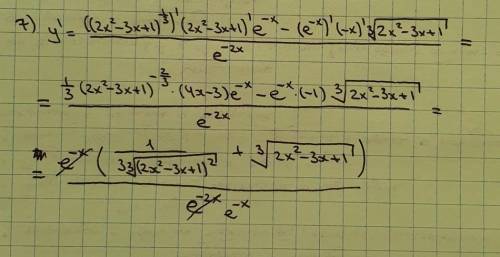 7) y' = (((2x²-3x+1)^(1/3))' (2x²-3x+1)' e^(-x) - (e^(-x))' (-x)' ∛(2x²-3x+1)) / e^(-2x) =
= (1/3 (2x²-3x+1)^(-2/3) · (4x-3)e^(-x) - e^(-x) · (-1) ∛(2x²-3x+1)) / e^(-2x) =
= e^(-x) (1 / (3∛(2x²-3x+1)²) + ∛(2x²-3x+1)) / e^(-2x) e^(-x)